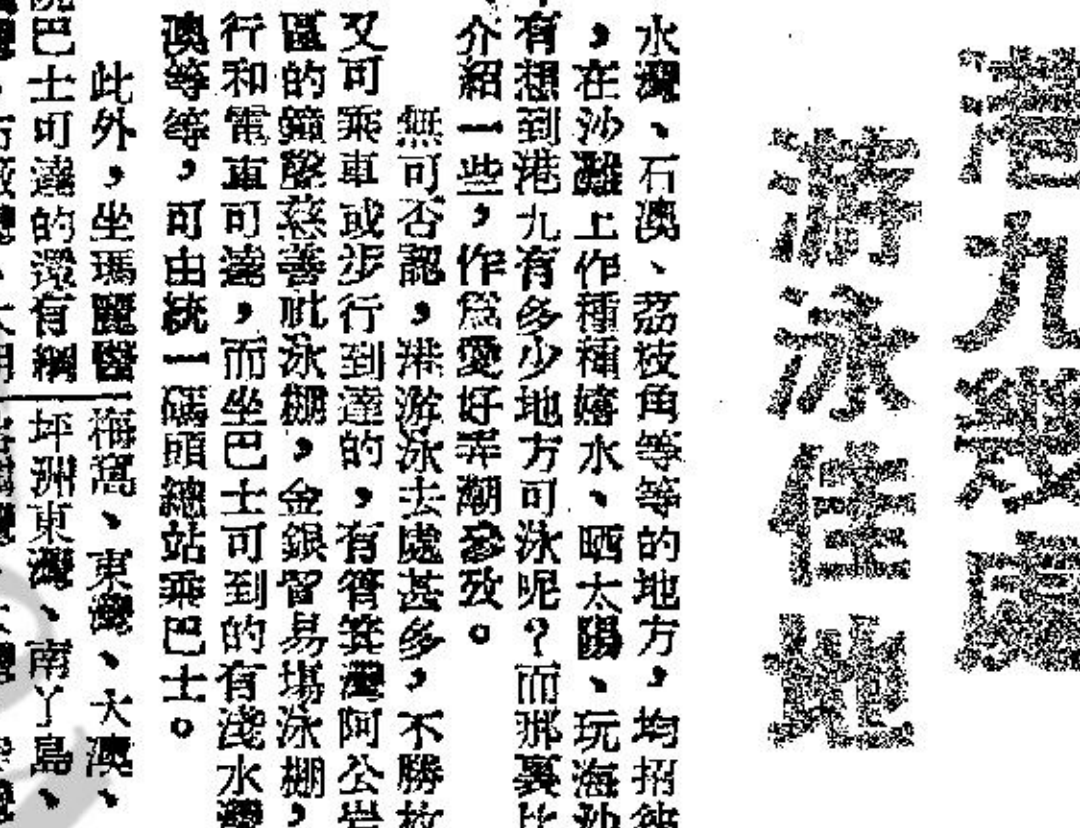 港九幾處
游泳佳地
水灣、石澳、荔枝角等等的地方，均招
，在沙灘上作種種嬉水、晒太陽、玩海沙
有想到港九有多少地方可泳呢？而那裏比
介紹一些，作爲愛好弄潮參攷。
無可否認，港游泳去處甚多，不勝枚
又可乘車或步行到達的，有筲箕灣阿公岩
區的鐘聲慈善社泳棚，金銀貿易場泳棚，
行和電車可達，而坐巴士可到的有淺水灣
澳等等，可由統一碼頭總站乘巴士。
此外，坐瑪麗醫
巴士可達的還有
梅窩、東灣、大澳、
坪洲東灣、南丫島、